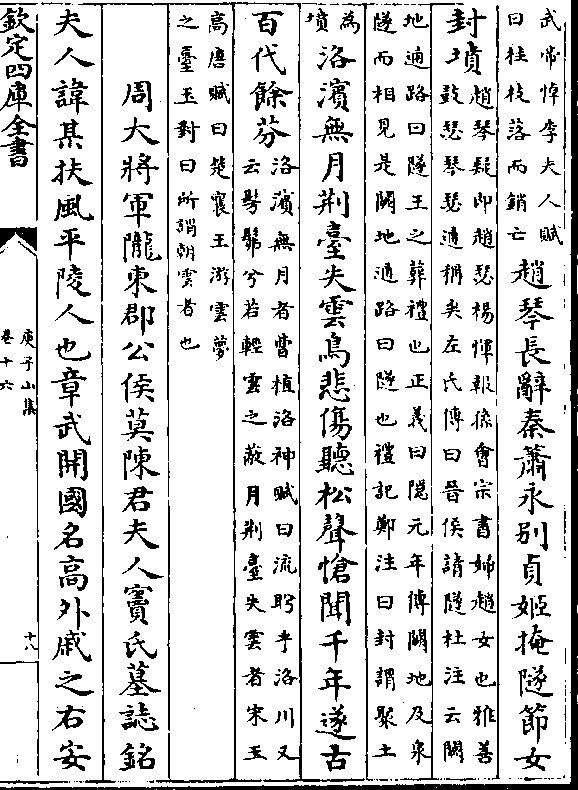 武帝悼李夫人賦
曰桂枝落而銷亡
趙琴長辭秦蕭永别貞姬掩隧節女
封墳
趙琴疑即趙瑟楊惲報孫會宗書婦趙女也雅善
鼓瑟琴瑟通稱矣左氏傳曰晉侯請隧杜注云闕
地通路曰隧王之葬禮也正義曰隠元年傳闕地及泉
隧而相見是闕地通路曰隧也禮記鄭注曰封謂聚土
為
墳
洛濱無月荆臺失雲鳥悲傷聽松聲愴聞千年遂古
百代餘芬
洛濱無月者曹植洛神賦曰流眄乎洛川又
云髣髴兮若輕雲之蔽月荆臺失雲者宋玉
高唐賦曰楚襄王游雲夢
之臺玉對曰所謂朝雲者也
周大將軍隴東郡公侯莫陳君夫人竇氏墓誌銘
夫人諱某扶風平陵人也章武開國名高外戚之右安
欽定四庫全書
庾子山集
卷十六
十八